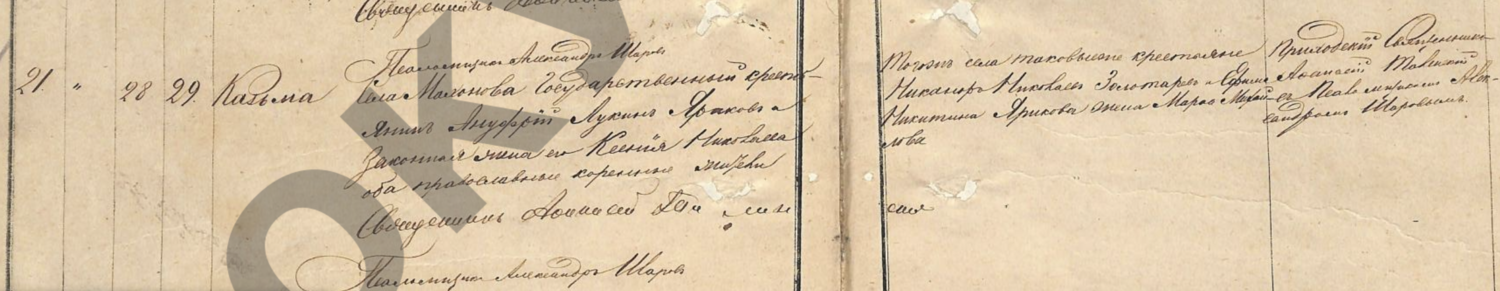 Священникъ
Псаломщикъ Александръ Шаровъ
21. " 28 29. Казьма
Села Мамонова Государственный кресть-
янинъ Ануфрій Лукинъ Яриковъ и
законная жена его Ксенія Николаева
оба православные коренные жители
Священникъ Афанасій
Псаломщикъ Александръ Шаровъ
Тогожъ села таковыеже крестьяне
Никаноръ Николаевъ Золотаревъ и Ефима
Никитина Ярикова жена Марфа Михай-
лова
Приходскій Священникъ
Афанасій съ Псаломщикомъ Алек-
сандромъ Шаровымъ.